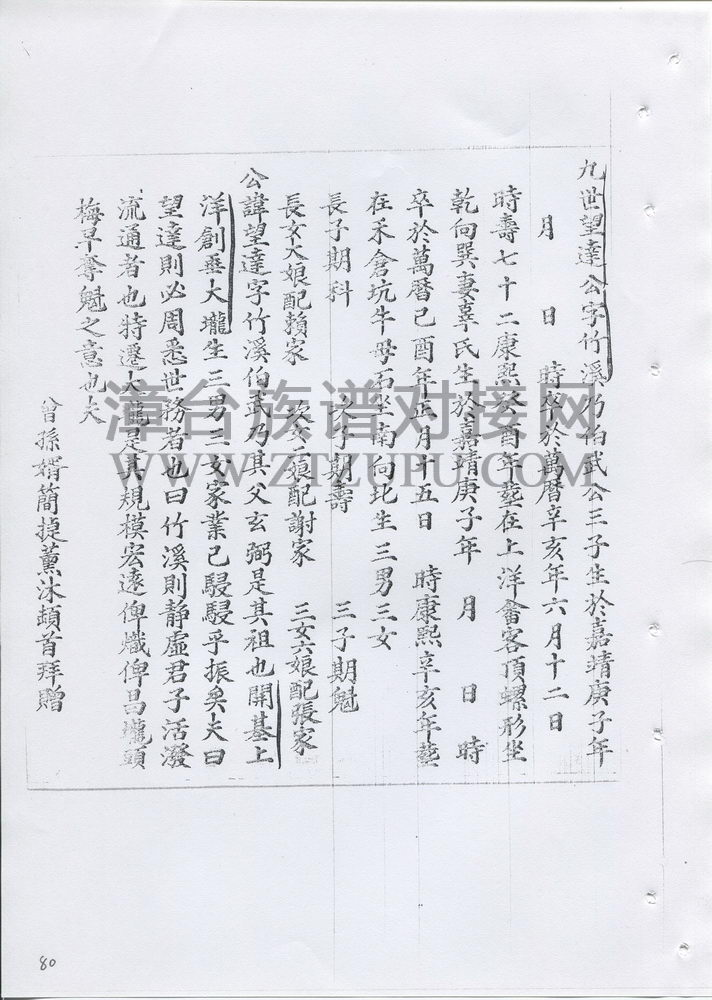 九世望達公字竹溪乃伯武公三子生於嘉靖庚子年
月 日 時卒於萬曆辛亥年六月十二日
時壽七十二康熙癸酉年塟在上洋會客頂螺形坐
乾向巽妻辜氏生於嘉靖庚子年 月 日 時
卒於萬曆己酉年正月十五日 時康熙辛亥年塟
在禾倉坑牛母石坐南向北生三男三女
長子期科 次子期壽 三子期魁
長女大娘配賴家 次女二娘配謝家 三女六娘配張家
公諱望達字竹溪伯武乃其父玄弼是其祖也開基上
洋創垂大壠生三男三女家業已駸駸乎振矣夫曰
望達則必周悉世務者也曰竹溪則静虛君子活潑
流通者也特遷大壠是其規模宏遠俾熾俾昌壠頭
梅早奪魁之意也夫
曾孫婿簡捷薰沐頓首拜贈
漳台族谱对接网
WWW.ZTZUPU.COM
80